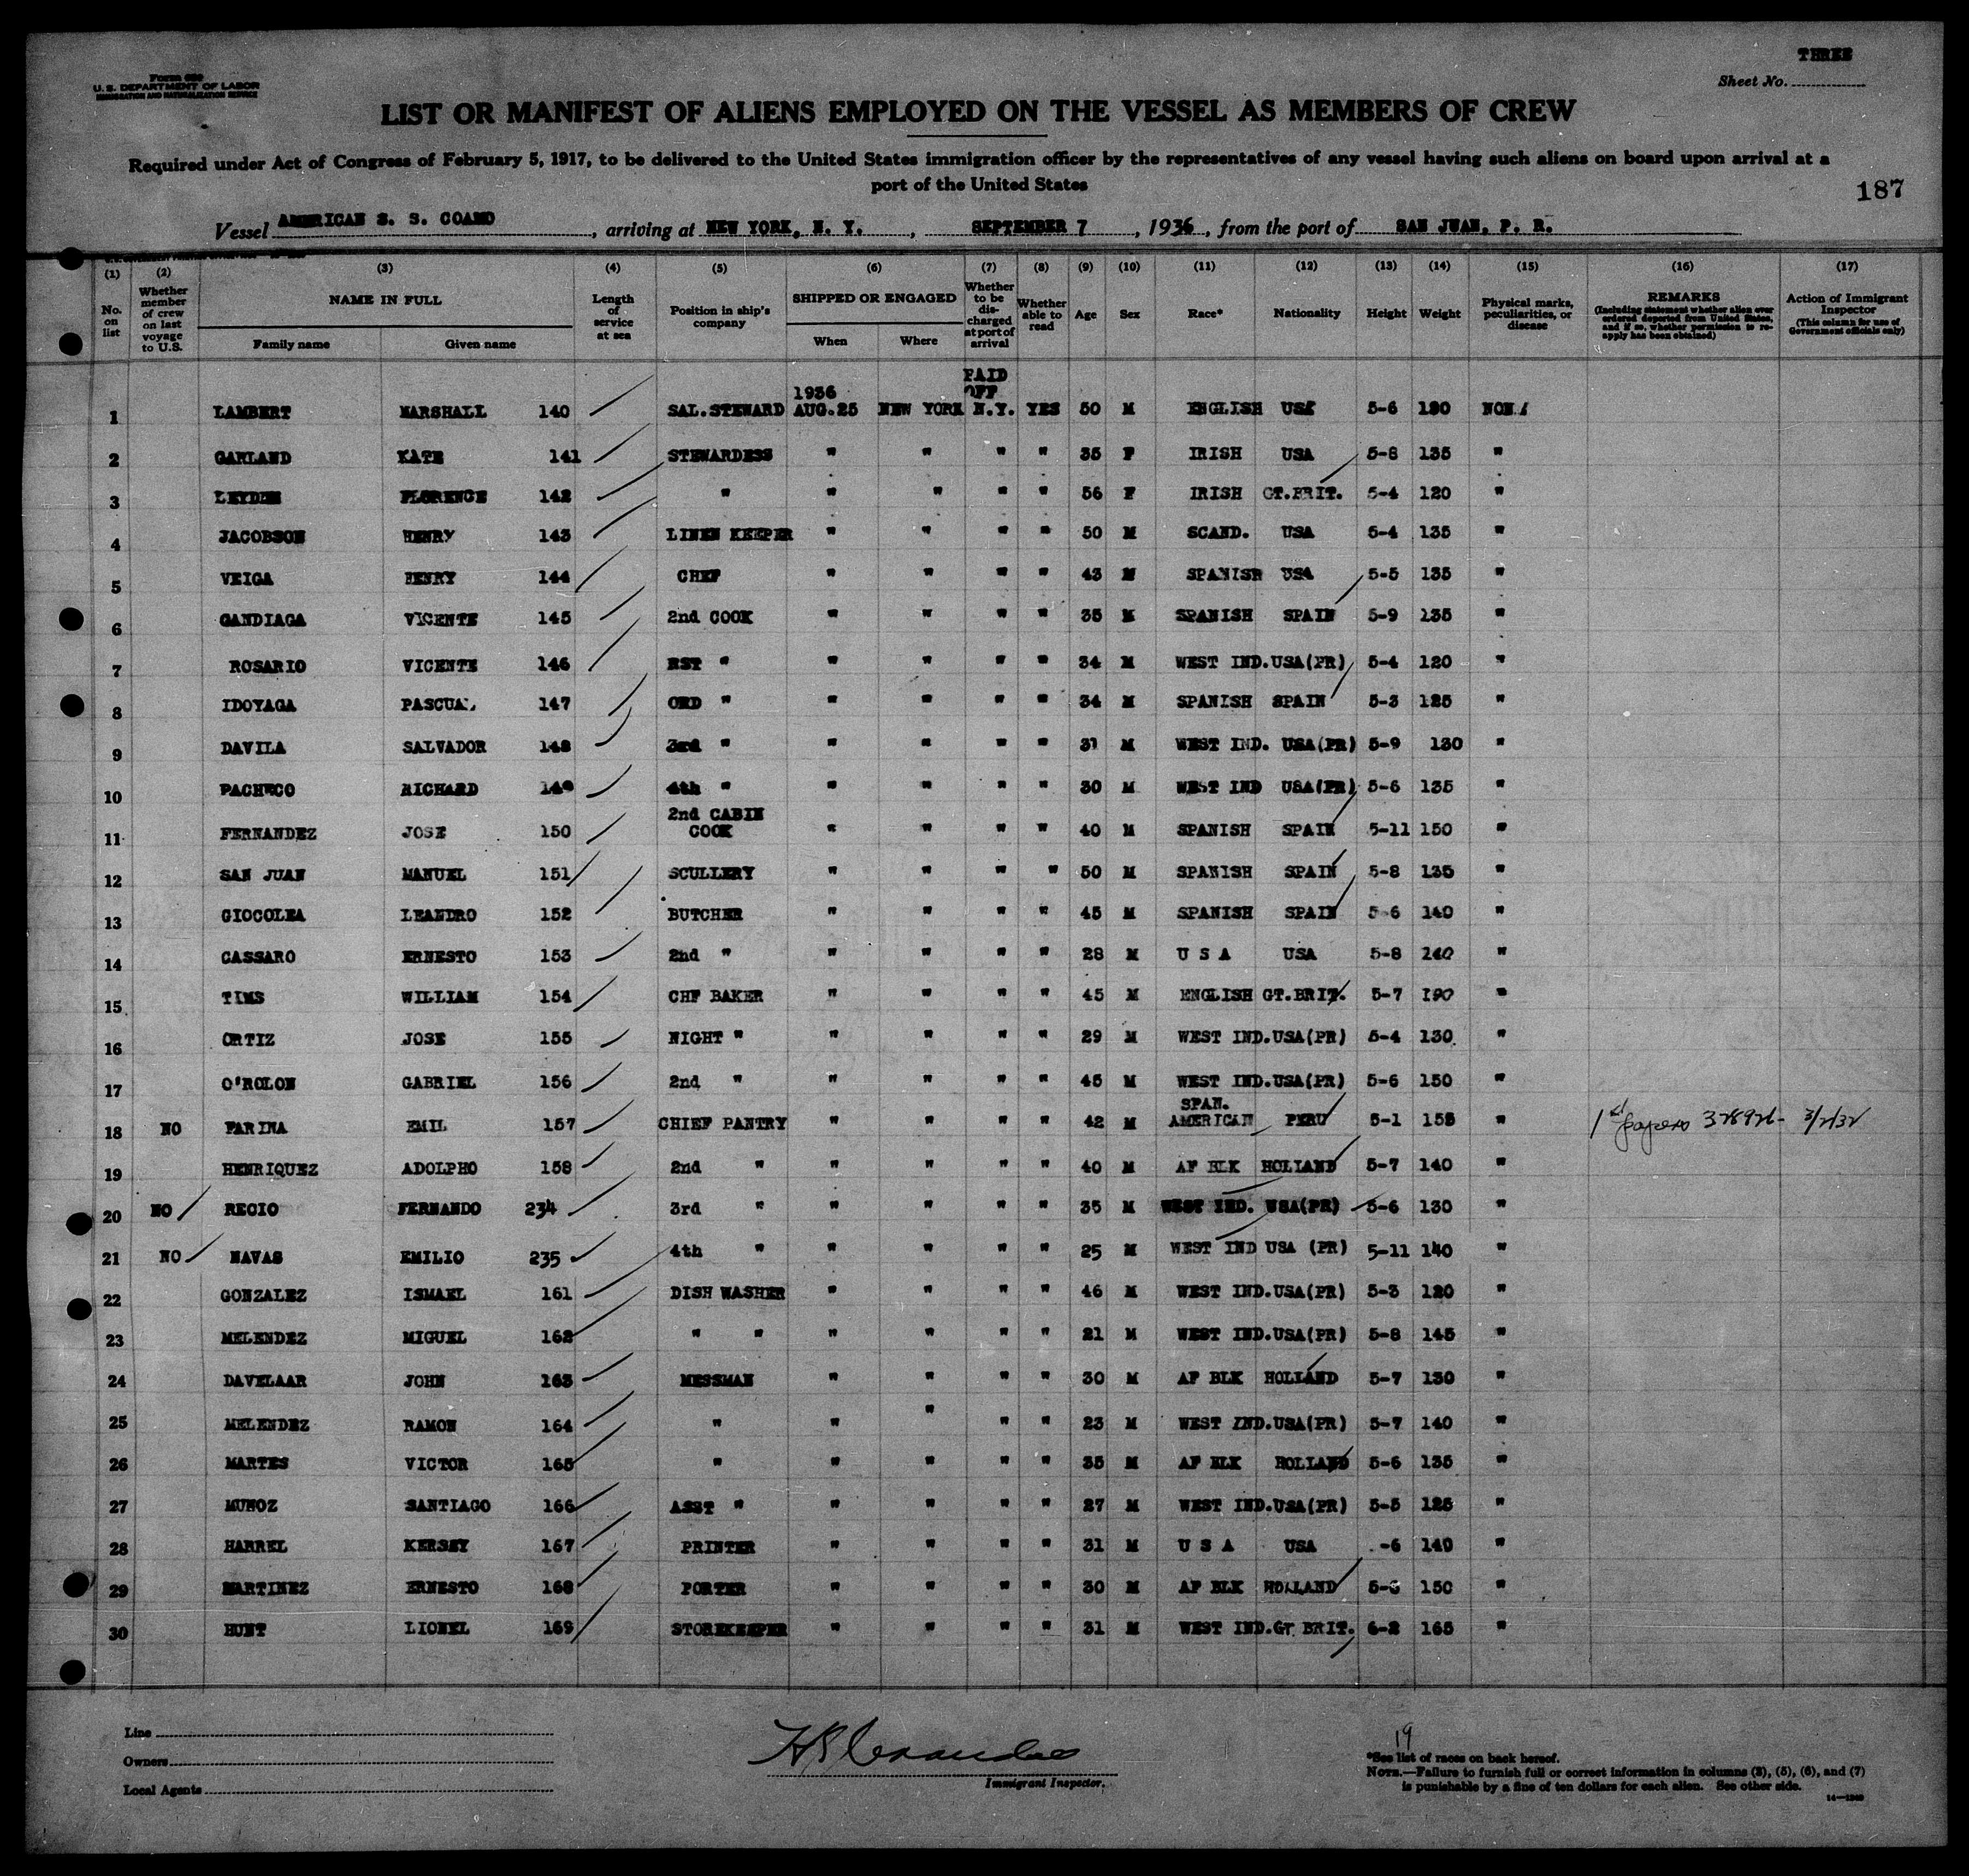 THREE
Form 689
U. S. DEPARTMENT OF LABOR
IMMIGRATION AND NATURALIZATION SERVICE
Sheet No.
LIST OR MANIFEST OF ALIENS EMPLOYED ON THE VESSEL AS MEMBERS OF CREW
Required under Act of Congress of February 5, 1917, to be delivered to the United States immigration officer by the representatives of any vessel having such aliens on board upon arrival at a
port of the United States
187
Vessel AMERICAN S. S. COAMO, arriving at NEW YORK, N. Y., SEPTEMBER 7, 1936, from the port of SAN JUAN, P. R.
(1) (2) (3) (4) (5) (6) (7) (8) (9) (10) (11) (12) (13) (14) (15) (16) (17)
No. on list
Whether member of crew on last voyage to U.S.
NAME IN FULL
Family name
Given name
Length of service at sea
Position in ship's company
SHIPPED OR ENGAGED
When
Where
Whether to be discharged at port of arrival
Whether able to read
Age
Sex
Race*
Nationality
Height
Weight
Physical marks, peculiarities, or disease
REMARKS
(Including statement whether alien ever ordered deported from United States, and if so, whether permission to reapply has been obtained)
Action of Immigrant Inspector
(This column for use of Government officials only)
1936 PAID OFF
1 LAMBERT MARSHALL 140 SAL.STEWARD AUG.25 NEW YORK N.Y. YES 50 M ENGLISH USA 5-6 190
2 GARLAND KATE 141 STEWARDESS " " " " 35 F IRISH USA 5-8 135 "
3 LEYDEN FLORENCE 142 " " " " " 56 F IRISH GT.BRIT. 5-4 120 "
4 JACOBSON HENRY 143 LINEN KEEPER " " " " 50 M SCAND. USA 5-4 135 "
5 VEIGA HENRY 144 CHEF " " " " 43 M SPANISH USA 5-5 135 "
6 GANDIAGA VICENTE 145 2nd COOK " " " " 35 M SPANISH SPAIN 5-9 135 "
7 ROSARIO VICENTE 146 RST " " " " " 34 M WEST IND. USA(PR) 5-4 120 "
8 IDOYAGA PASCUAL 147 ORD " " " " " 34 M SPANISH SPAIN 5-3 125 "
9 DAVILA SALVADOR 148 3rd " " " " " 31 M WEST IND. USA(PR) 5-9 130 "
10 PACHECO RICHARD 149 4th " " " " " 30 M WEST IND USA(PR) 5-6 135 "
11 FERNANDEZ JOSE 150 2nd CABIN COOK " " " " 40 M SPANISH SPAIN 5-11 150 "
12 SAN JUAN MANUEL 151 SCULLERY " " " " 50 M SPANISH SPAIN 5-8 135 "
13 GIOCOLEA LEANDRO 152 BUTCHER " " " " 45 M SPANISH SPAIN 5-6 140 "
14 CASSARO ERNESTO 153 2nd " " " " " 28 M U S A USA 5-8 140 "
15 TIMS WILLIAM 154 CHF BAKER " " " " 45 M ENGLISH GT.BRIT. 5-7 190 "
16 ORTIZ JOSE 155 NIGHT " " " " " 29 M WEST IND. USA(PR) 5-4 130 "
17 O'ROLON GABRIEL 156 2nd " " " " " 45 M WEST IND. USA(PR) 5-6 150 "
18 NO FARINA EMIL 157 CHIEF PANTRY " " " " 42 M SPAN. AMERICAN PERU 5-1 155 " 1st papers 3/2/32
19 HENRIQUEZ ADOLPHO 158 2nd " " " " " 40 M AF BLK HOLLAND 5-7 140 "
20 NO RECIO FERNANDO 234 3rd " " " " " 35 M WEST IND. USA(PR) 5-6 130 "
21 NO NAVAS EMILIO 235 4th " " " " " 25 M WEST IND USA (PR) 5-11 140 "
22 GONZALEZ ISMAEL 161 DISH WASHER " " " " 46 M WEST IND. USA(PR) 5-3 120 "
23 MELENDEZ MIGUEL 162 " " " " " " 21 M WEST IND. USA(PR) 5-8 145 "
24 DAVELAAR JOHN 163 MESSMAN " " " " 30 M AF BLK HOLLAND 5-7 130 "
25 MELENDEZ RAMON 164 " " " " " 23 M WEST IND. USA(PR) 5-7 140 "
26 MARTES VICTOR 165 " " " " " 35 M AF BLK HOLLAND 5-6 135 "
27 MUNOZ SANTIAGO 166 ASST " " " " " 27 M WEST IND. USA(PR) 5-5 125 "
28 HARREL KERSEY 167 PRINTER " " " " 31 M U S A USA -6 140 "
29 MARTINEZ ERNESTO 168 PORTER " " " " 30 M AF BLK HOLLAND 5-6 150 "
30 HUNT LIONEL 169 STOREKEEPER " " " " 31 M WEST IND. GT BRIT. 6-2 165 "
Line
Owners
Local Agents
Immigrant Inspector.
19
*See list of races on back hereof.
NOTE.—Failure to furnish full or correct information in columns (2), (5), (6), and (7)
is punishable by a fine of ten dollars for each alien. See other side.